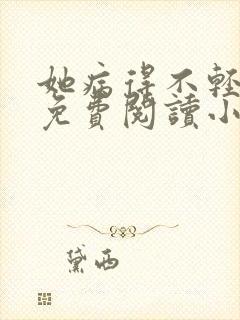 她病得不輕
免費閱讀小
黛西